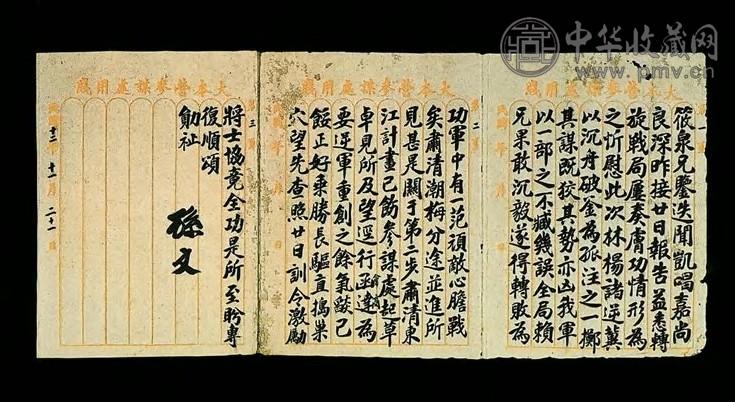 中华收藏网
www.pmv.cn
大本營參謀處用牋
第一頁
筱泉兄鑒迭聞凱唱嘉尚
良深昨接廿日報告益悉轉
旋戰局屢奏膚功情形為
之忻慰此次林楊諸逆冀
以沉舟破釜為孤注之一擲
其謀既狡其勢亦凶我軍
以一部之不臧幾誤全局賴
兄果敢沉毅遂得轉敗為
大本營參謀處用牋
第二頁
功軍中有一范頑敵心膽戰
矣肅清潮梅分途並進所
見甚是關于第二步肅清東
江計畫已飭參謀處起草
卓見所及望逕行函達為
要逆軍重創之餘氣燄已
餒正好乘勝長驅直搗巢
穴望先查照廿日訓令激勵
大本營參謀處用牋
第三頁
將士協竟全功是所至盼專
復順頌
勛祉
孫文
民國十二年十一月二十一日